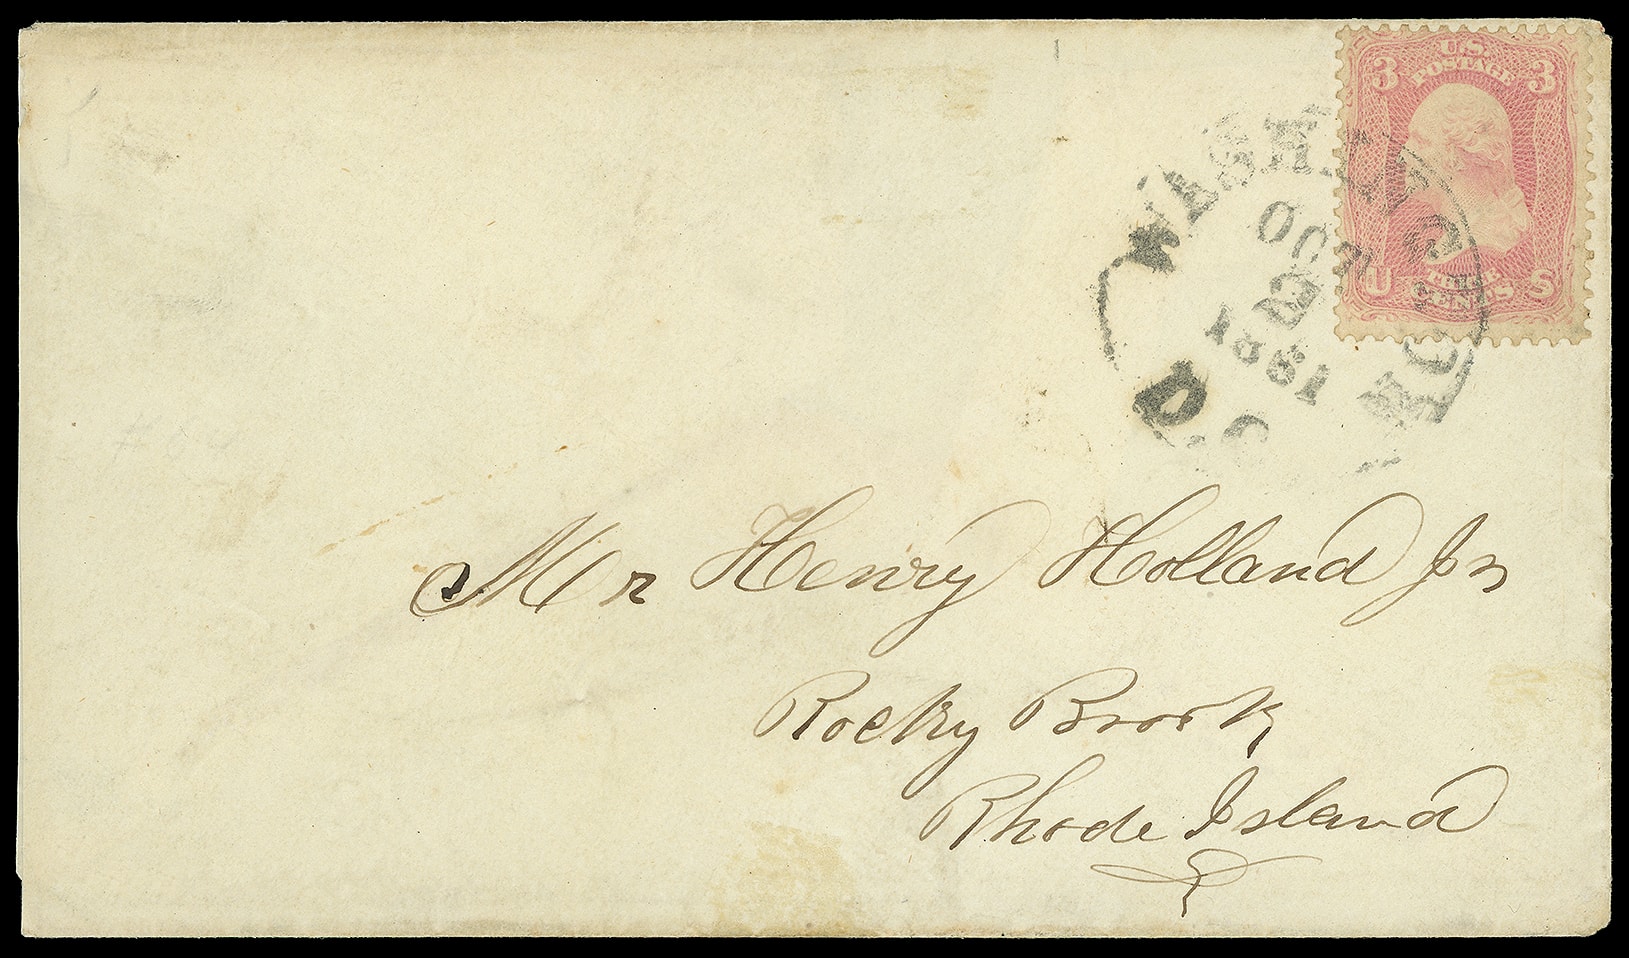 U.S.
POSTAGE
3 3
U THREE S
CENTS
WASHINGTON
OCT
2
1861
D.C.
Mr Henry Holland Jr
Rocky Brook
Rhode Island